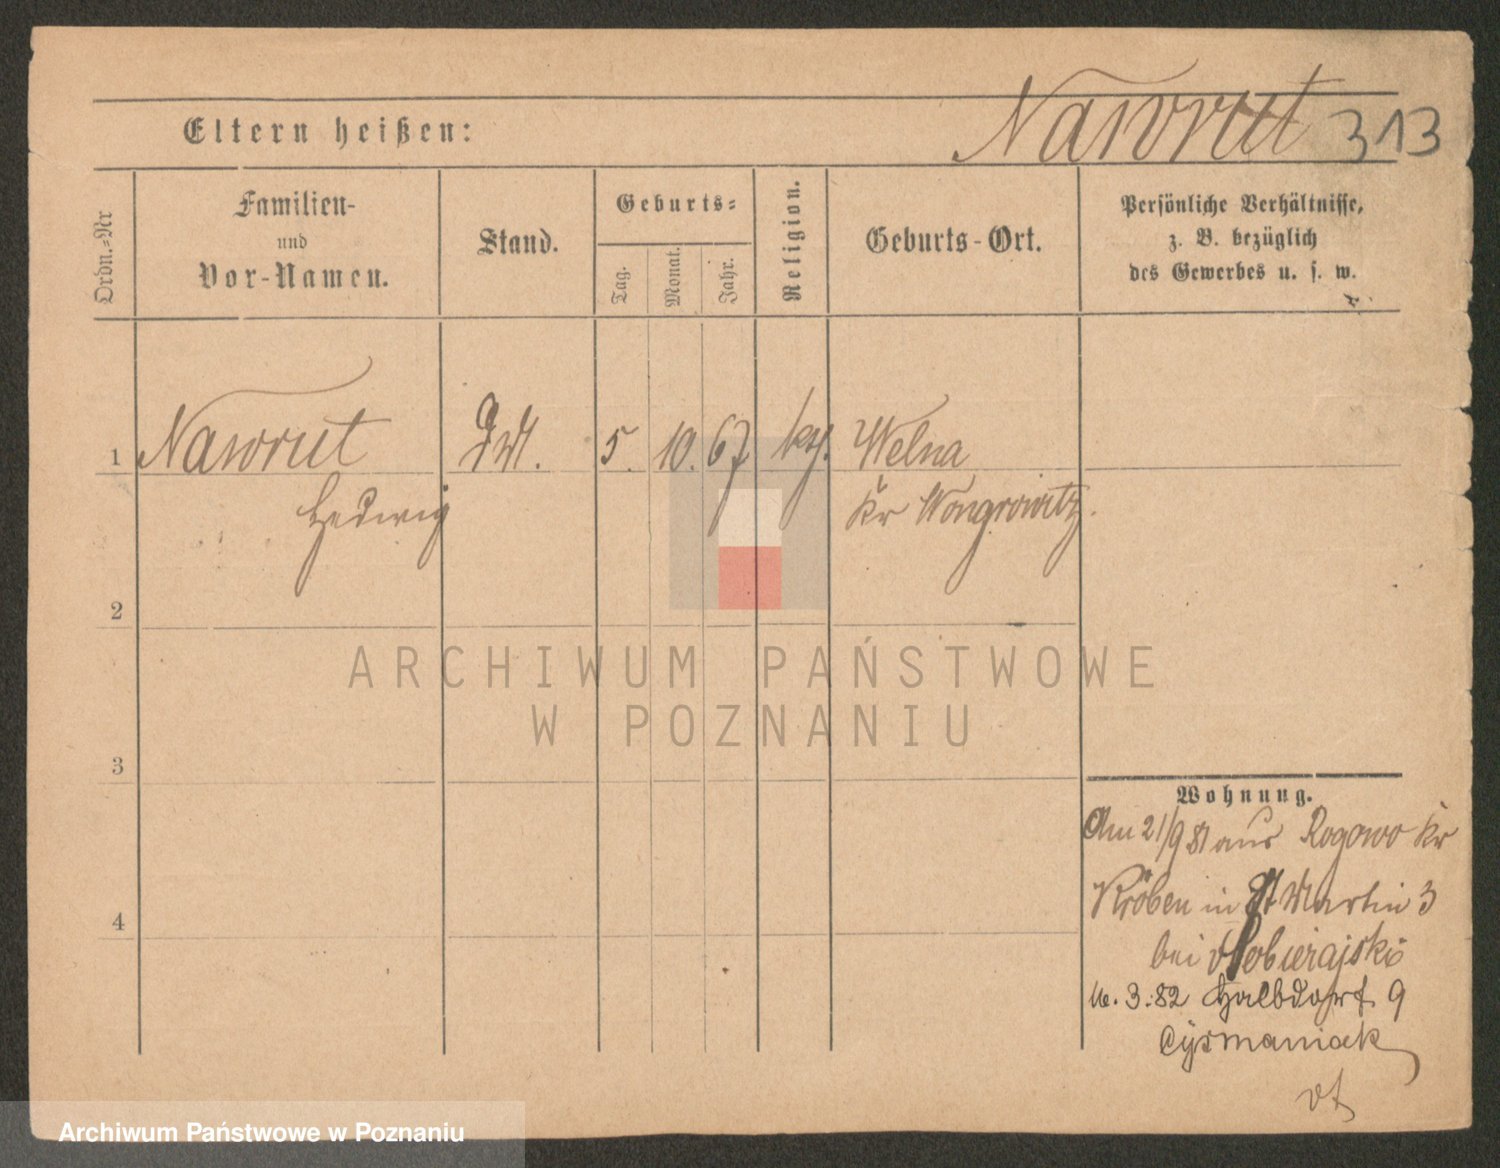 Nawrut 313
Eltern heißen:
Ordn.-Nr
Familien-
und
Vor-Namen.
Stand.
Geburts-
Tag.
Monat.
Jahr.
Religion.
Geburts-Ort.
Persönliche Verhältnisse,
z. B. bezüglich
des Gewerbes u. s. w.
1 Nawrut 5. 10. 67 Welna
Hedwig Kr Wongrowitz.
2
3
4
Wohnung.
Am 21/9 81 aus Rogowo Kr
Kröben in St Martin 3
bei
3.82 Halbdorf 9
ARCHIWUM PAŃSTWOWE
W POZNANIU
Archiwum Państwowe w Poznaniu